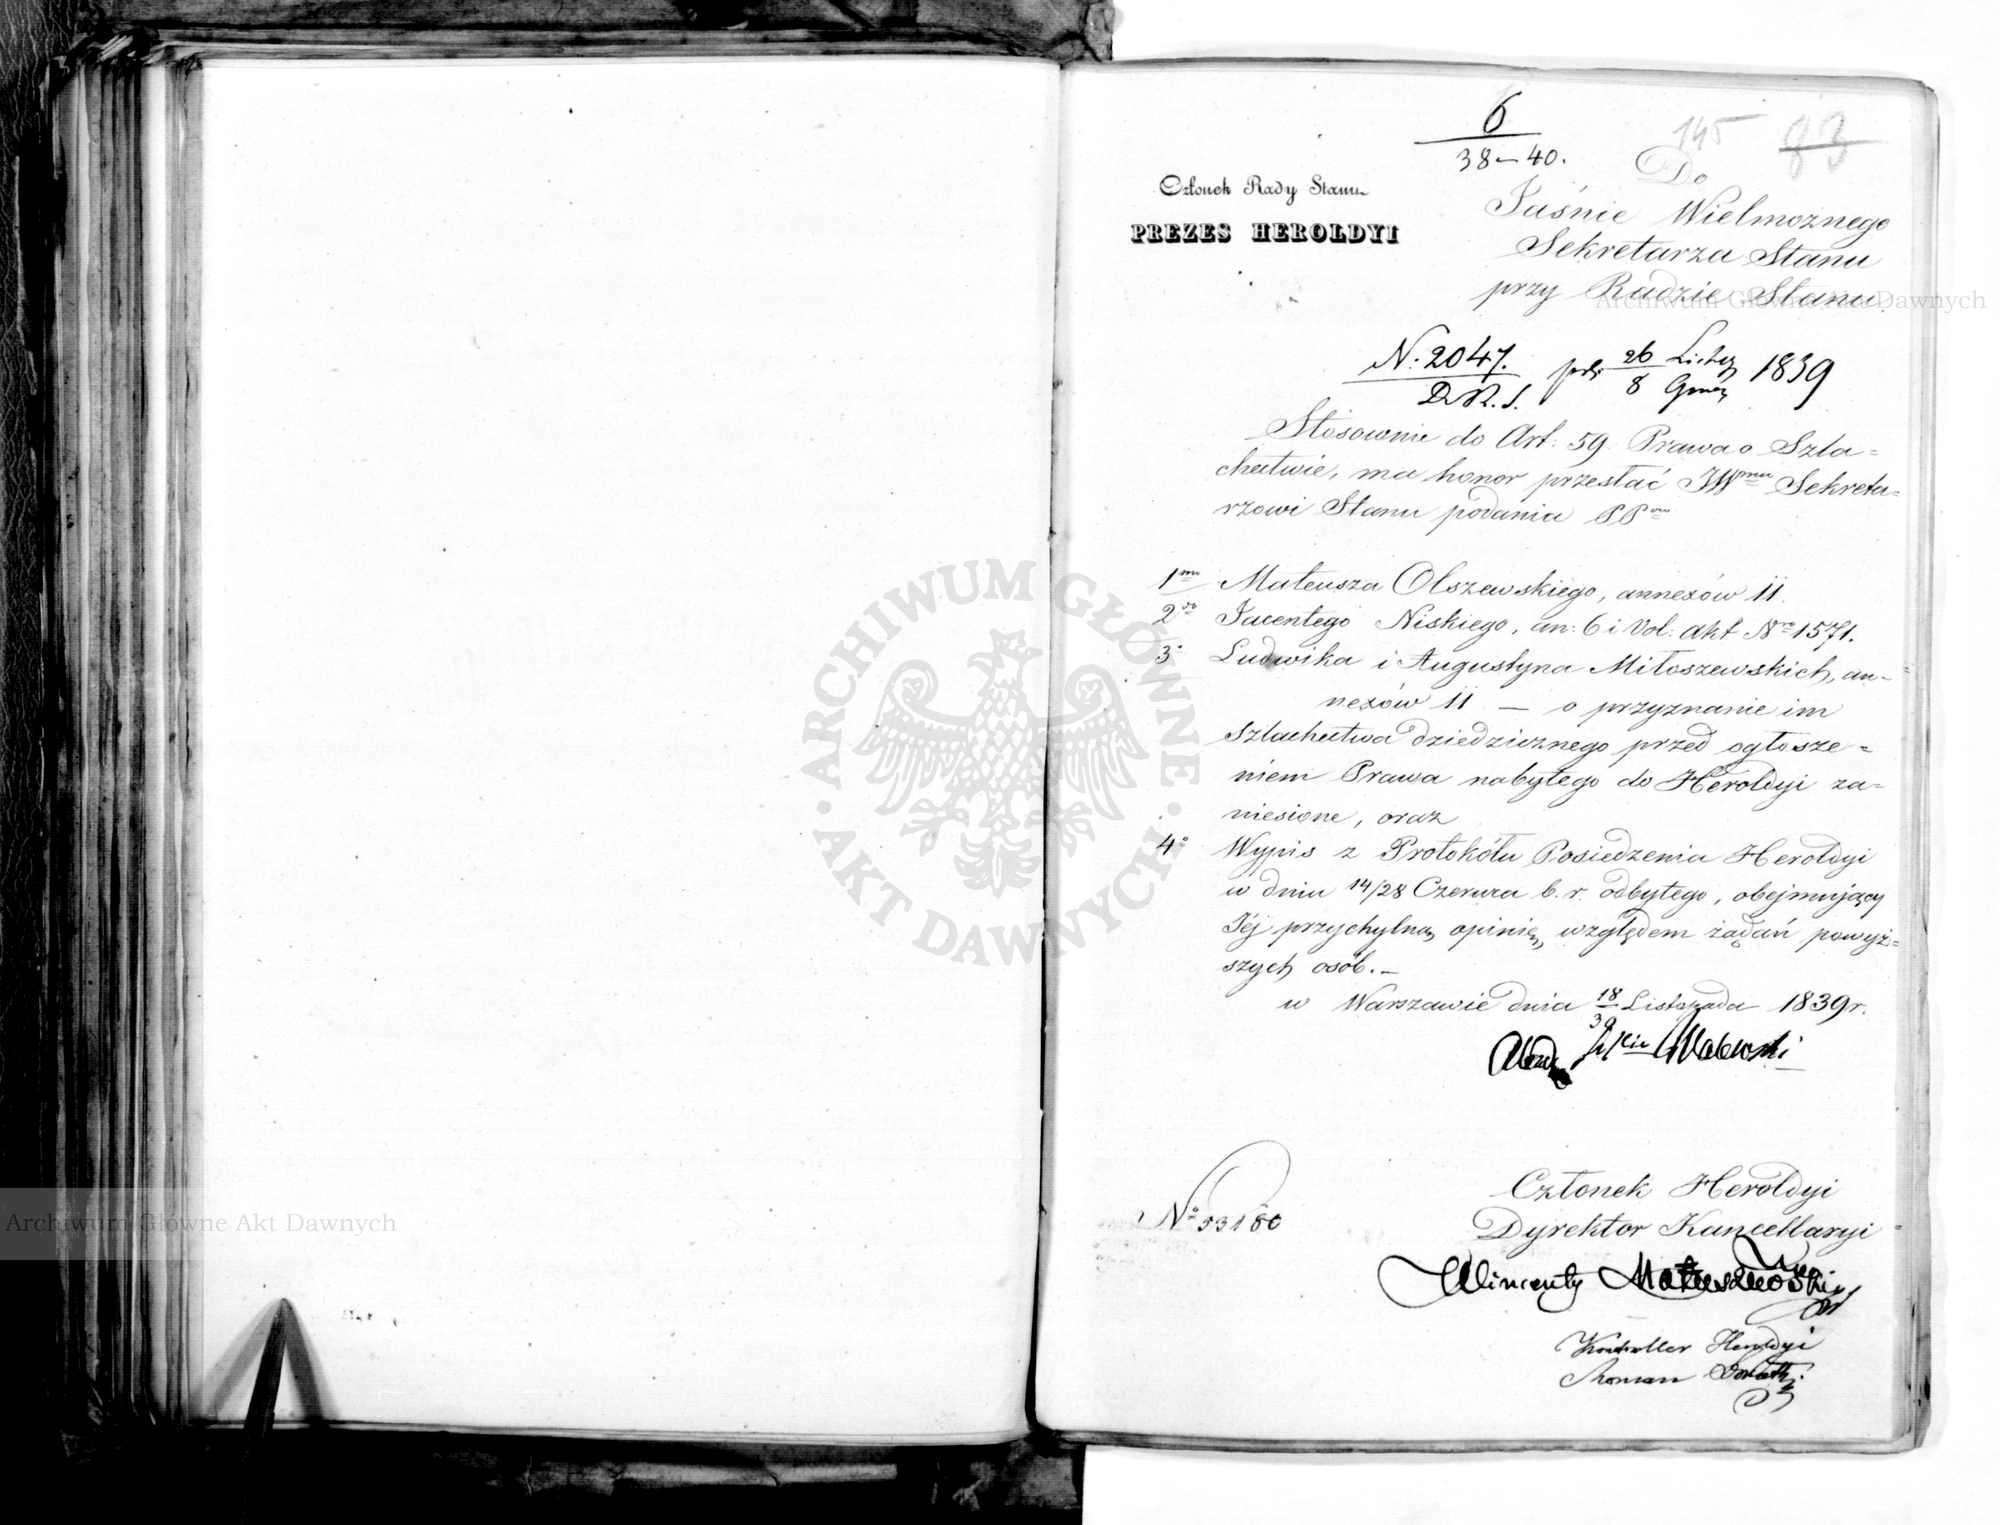 6
38–40.
145 83
Członek Rady Stanu
PREZES HEROLDYI
Do
Jaśnie Wielmożnego
Sekretarza Stanu
przy Radzie Stanu.
N. 2047.
D.R.S.
26 Listop
8 Grud 1839
Stósownie do Art: 59. Prawa o Szla=
chectwie, ma honor przesłać JWmu Sekreta=
rzowi Stanu podania PP
1mo Mateusza Olszewskiego, annexów 11.
2do Jacentego Niskiego, an: 6 i Vol: akt Nro 1571.
3o Ludwika i Augustyna Miłoszewskich, an=
nexów 11 — o przyznanie im
Szlachectwa dziedzicznego przed ogłosze=
niem Prawa nabytego do Heroldyi za=
niesione, oraz
4o Wypis z Protokółu Posiedzenia Heroldyi
w dniu 14/28 Czerwca b. r. odbytego, obejmujący
Jéj przychylną opinię, względem żądań powyż=
szych osób. —
w Warszawie dnia 18/30 Listopada 1839 r.
Walewski
No 53180
Członek Heroldyi
Dyrektor Kancellaryi
Wincenty Matuszewski
Kontroller Heroldyi
Roman
ARCHIWUM GŁÓWNE
AKT DAWNYCH
Archiwum Główne Akt Dawnych
Archiwum Główne Akt Dawnych